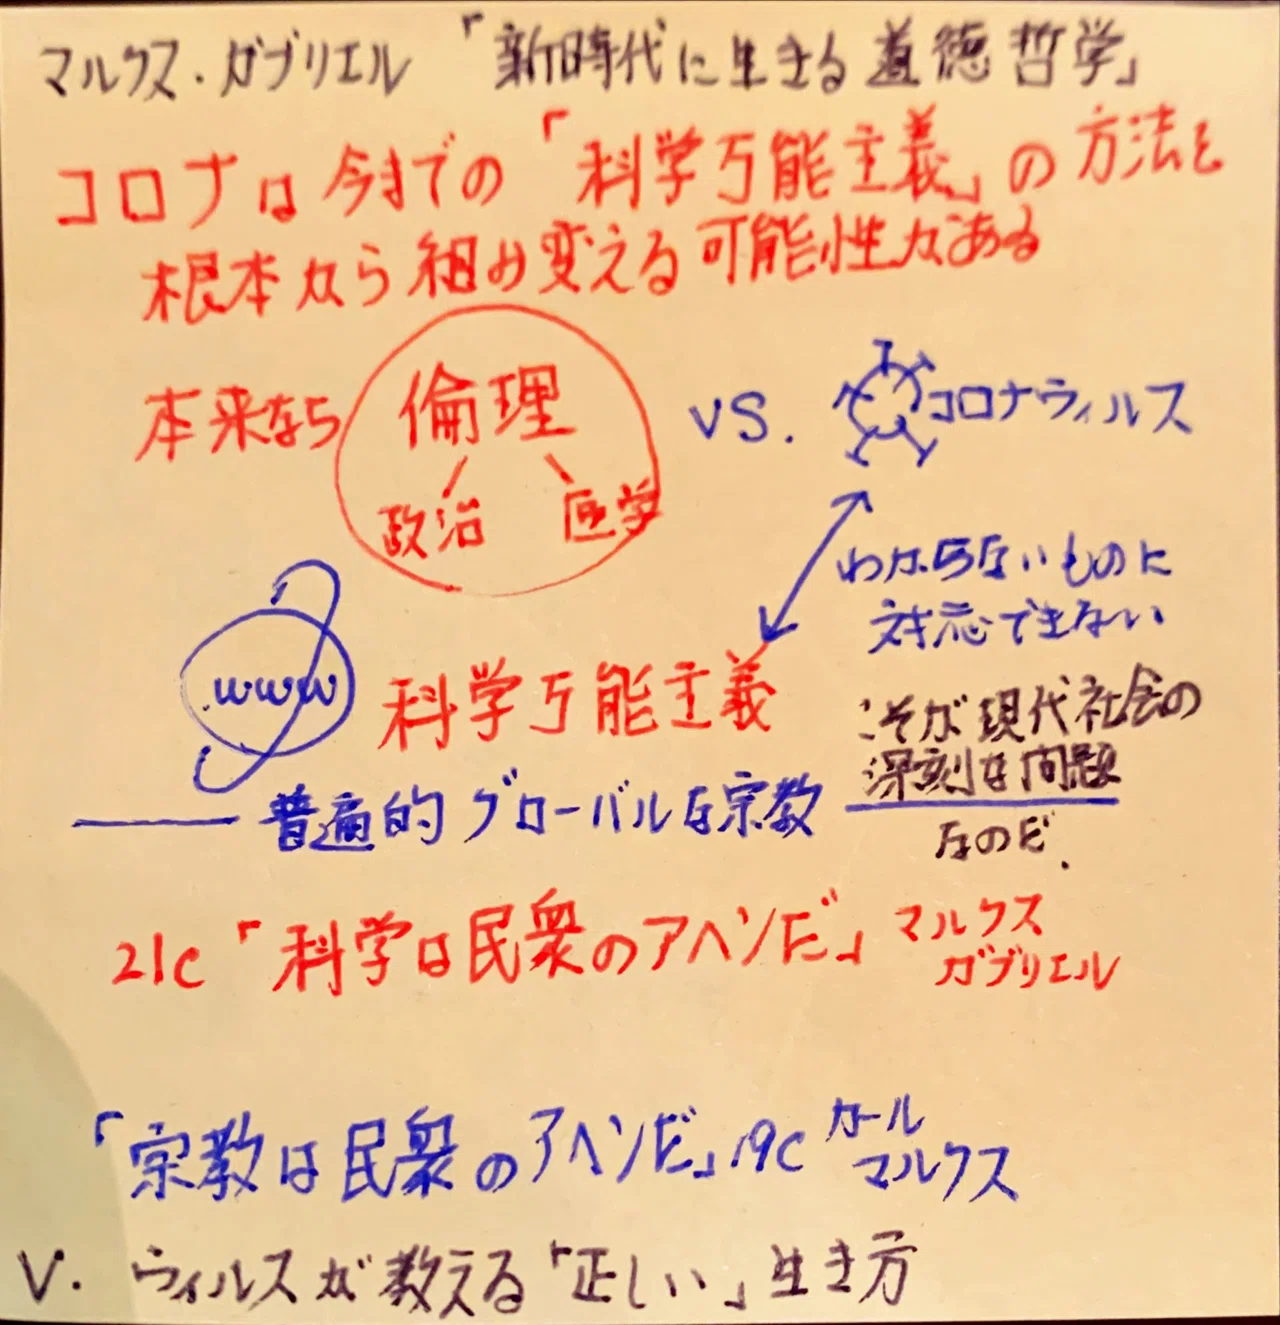 マルクス・ガブリエル 「新時代に生きる道徳哲学」
コロナは今までの「科学万能主義」の方法を
根本から組み変える可能性がある
本来なら 倫理 vs. コロナウィルス
政治 医学
わからないものに
対応できない
.www 科学万能主義
こそが現代社会の
深刻な問題
なのだ.
普遍的グローバルな宗教
21c「科学は民衆のアヘンだ」 マルクス
ガブリエル
「宗教は民衆のアヘンだ」19c カール
マルクス
V. ウィルスが教える「正しい」生き方